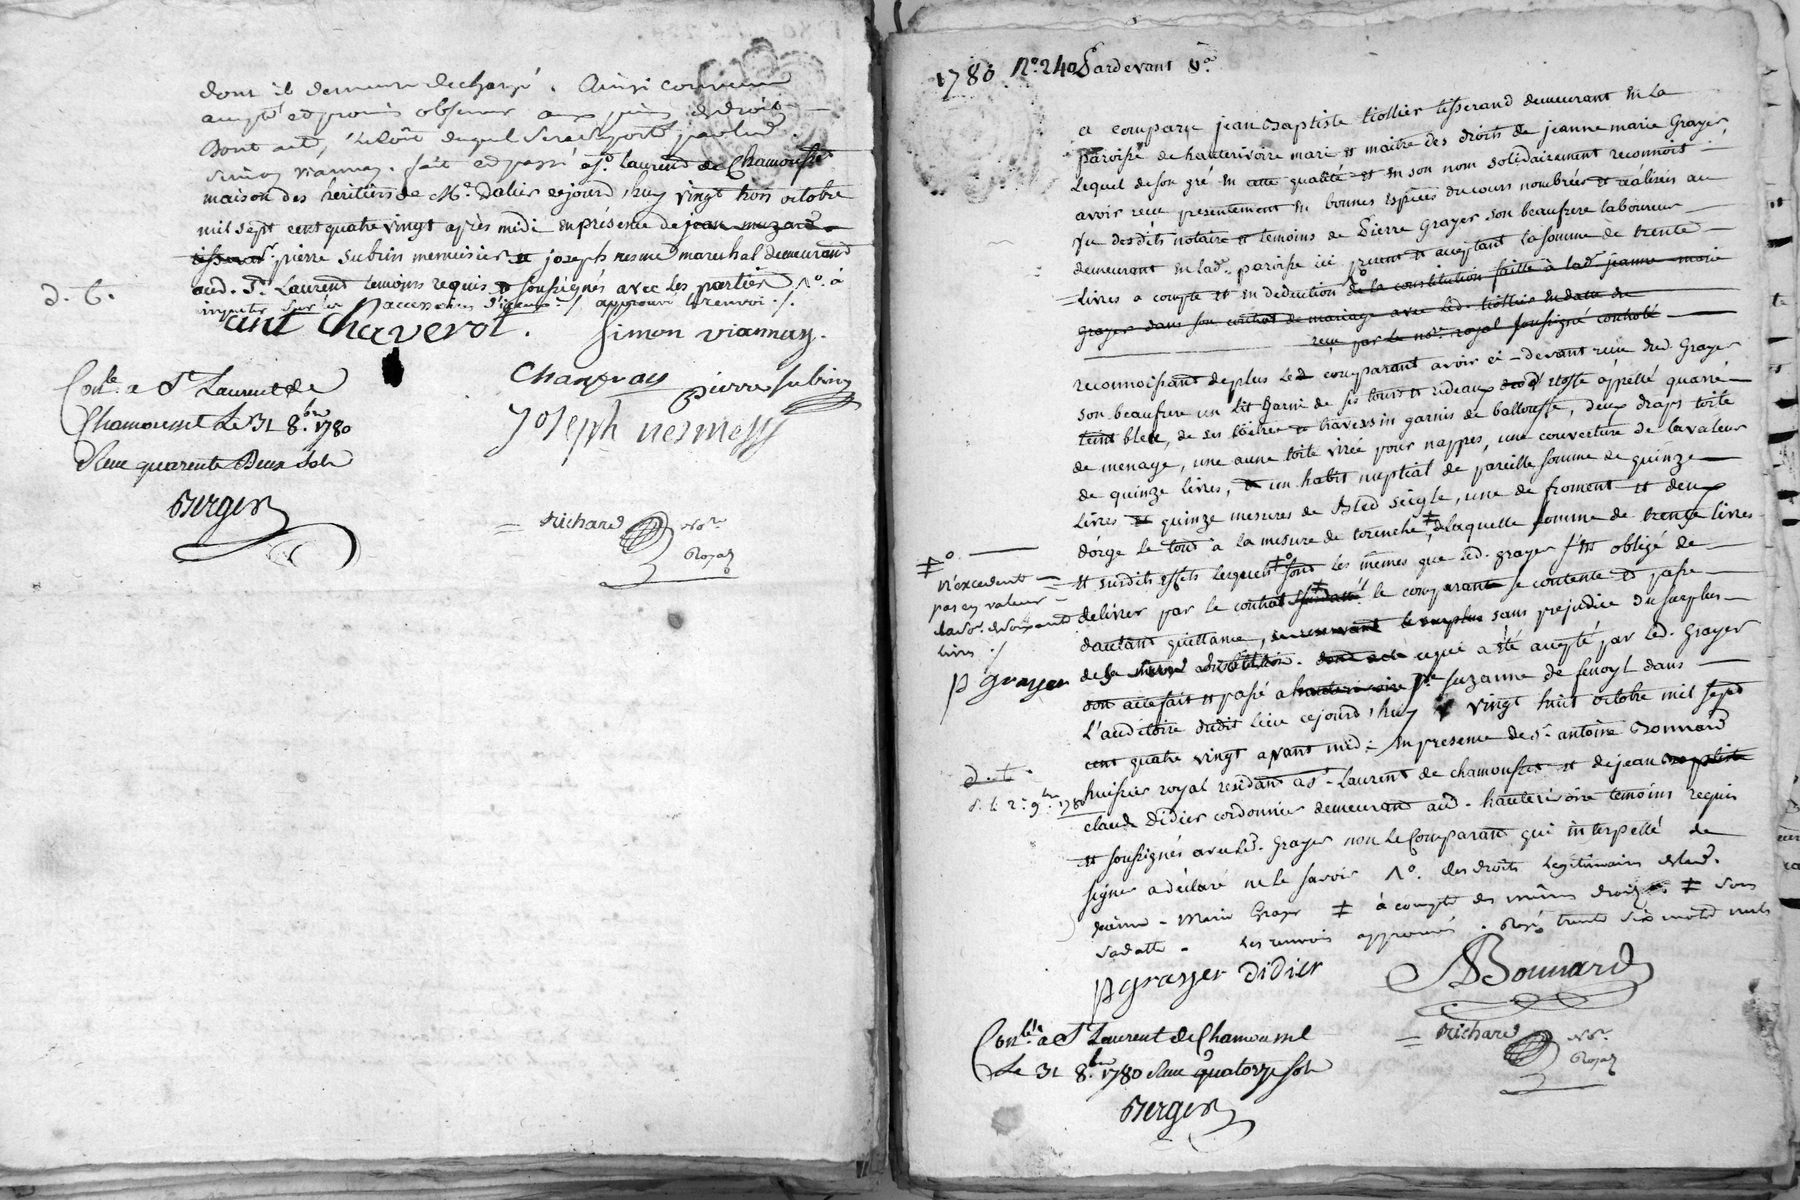 dont il demeure dechargé. Ainsi convenu
accepté et promis observer aux peines de droit
Dont acte,
Simon viannay. fait et passé a St. laurend de Chamousset
maison des heritiers de Mr. dalier cejourd'huy vingt trois octobre
mil sept cent quatre vingt après midi en présence de jean muzard
tisserand. pierre subrin menuisier et joseph nesme marechal demeurand
aud. St. Laurent temoins requis et soussignés avec les parties 1o. à
approuvé le renvoi ./.
d. t.
ant Chaverot. Simon viannay.
Chazeray pierre subrin
Joseph nesmess
Conle. a St Laurent de
Chamousset Le 31 8.bre 1780
Reçu quarente Deux sols
Berger
= Richard Nore.
Royal
1780 No. 240 Pardevant &a.
et comparu jean Baptiste tiollier tisserand demeurant en la
paroisse de hauterivoire mari et maitre des droits de jeanne marie Grayer,
Lequel de son gré en cette qualité et en son nom solidairement reconnoit
avoir reçu presentement en bonnes espèces du cours nombrées et realisées au
vu desdits notaire et temoins de Pierre Grayer son beaufrere laboureur
demeurant en lad. paroisse ici present et acceptant la somme de trente
Livres a compte et en deduction de la constitution faitte à lad. jeanne marie
Grayer dans son contrat de mariage avec led. tiollier en datte du
reçu par le nore. royal soussigné controlé
reconnoissant de plus led. comparant avoir ci-devant reçu dud. Grayer
son beaufrere un lit Garni de ses tours et rideaux etoffe appellé quarré
teint bleu, de ses et traversin garnis de ballouffe, deux draps toile
de menage, une aune toile virée pour nappes, une couverture de la valeur
de quinze livres, et un habit nuptial de pareille somme de quinze
Livres et quinze mesures de bled seigle, une de froment et deux
d'orge le tout à la mesure de torenche, de laquelle somme de trente livres
et susdits effets lesquels sont les mêmes que led. grayer s'est obligé de
delivrer par le contrat susdatté le comparant se contente et passe
dautant quittance, en reservant le surplus sans prejudice du surplus
de la dont acte ce qui a été accepté par led. Grayer
dont acte fait et passé a hauterivoire Ste suzanne de fenoyl dans
L'auditoire dudit lieu cejourd'huy vingt huit octobre mil sept
cent quatre vingt avant midi en presence de Sr. antoine Bonnard
huissier royal residant a St. Laurent de chamousset et de jean baptiste
claude Didier cordonnier demeurant aud. hauterivoire temoins requis
et soussignés avec led. Grayer non le Comparant qui interpellé de
signer a déclaré ne le savoir 1o. des droits legitimaires de lad.
jeanne - Marie Grayer ǂ à compte des mêmes droits ǂ sous
sadatte - Les renvois approuvés. Rayé trente six mots nuls
ǂo.
N'excedent
pas en valeur
la so. de soixante
livres ./
p grayer
d. t.
d. t. 2. 9bre. 1780
p grayer Didier ABonnard
= Richard Nore.
Royal
Conlé. a St Laurent de Chamousset
Le 31 8.bre 1780 Reçu quatorze sols
Berger